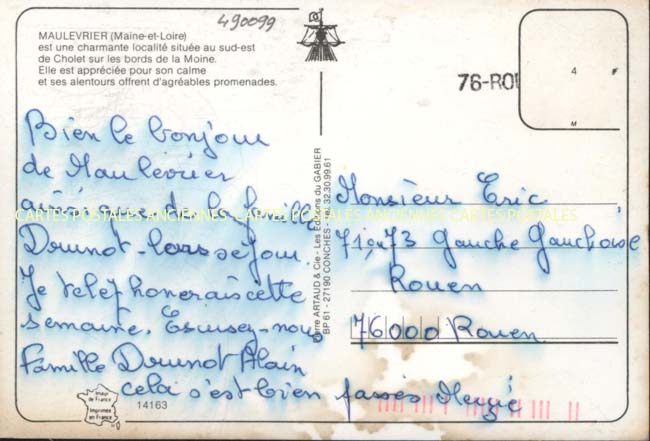 490099
MAULEVRIER (Maine-et-Loire)
est une charmante localité située au sud-est
de Cholet sur les bords de la Moine.
Elle est appréciée pour son calme
et ses alentours offrent d'agréables promenades.
76-ROU
4
M
Bien le bonjour
de Maulevrier
de la famille
Drunot - lors séjour.
Je telephonerais cette
semaine. Excusez-nous
Famille Drunot Alain
cela s'est bien passés
CARTES POSTALES ANCIENNES CARTES POSTALES ANCIENNES CARTES POSTALES ANCIENNES
Pierre ARTAUD & Cie - Les Editions du GABIER
BP 61 - 27190 CONCHES - 32.30.99.61
Monsieur Eric
71 ou 73 Gauche Gauchoise
Rouen
76000 Rouen
Imprimée
en France
14163